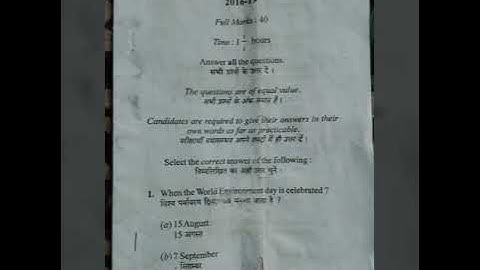 2016-19
Full Marks : 40
Time : 1 1/2 hours
Answer all the questions.
सभी प्रश्नों के उत्तर दें।
The questions are of equal value.
सभी प्रश्नों के अंक समान हैं।
Candidates are required to give their answers in their
own words as far as practicable.
परीक्षार्थी यथासम्भव अपने शब्दों में ही उत्तर दें।
Select the correct answer of the following :
निम्नलिखित का सही उत्तर चुनें।
1. When the World Environment day is celebrated ?
विश्व पर्यावरण दिवस कब मनाया जाता है ?
(a) 15 August
15 अगस्त
(b) 7 September